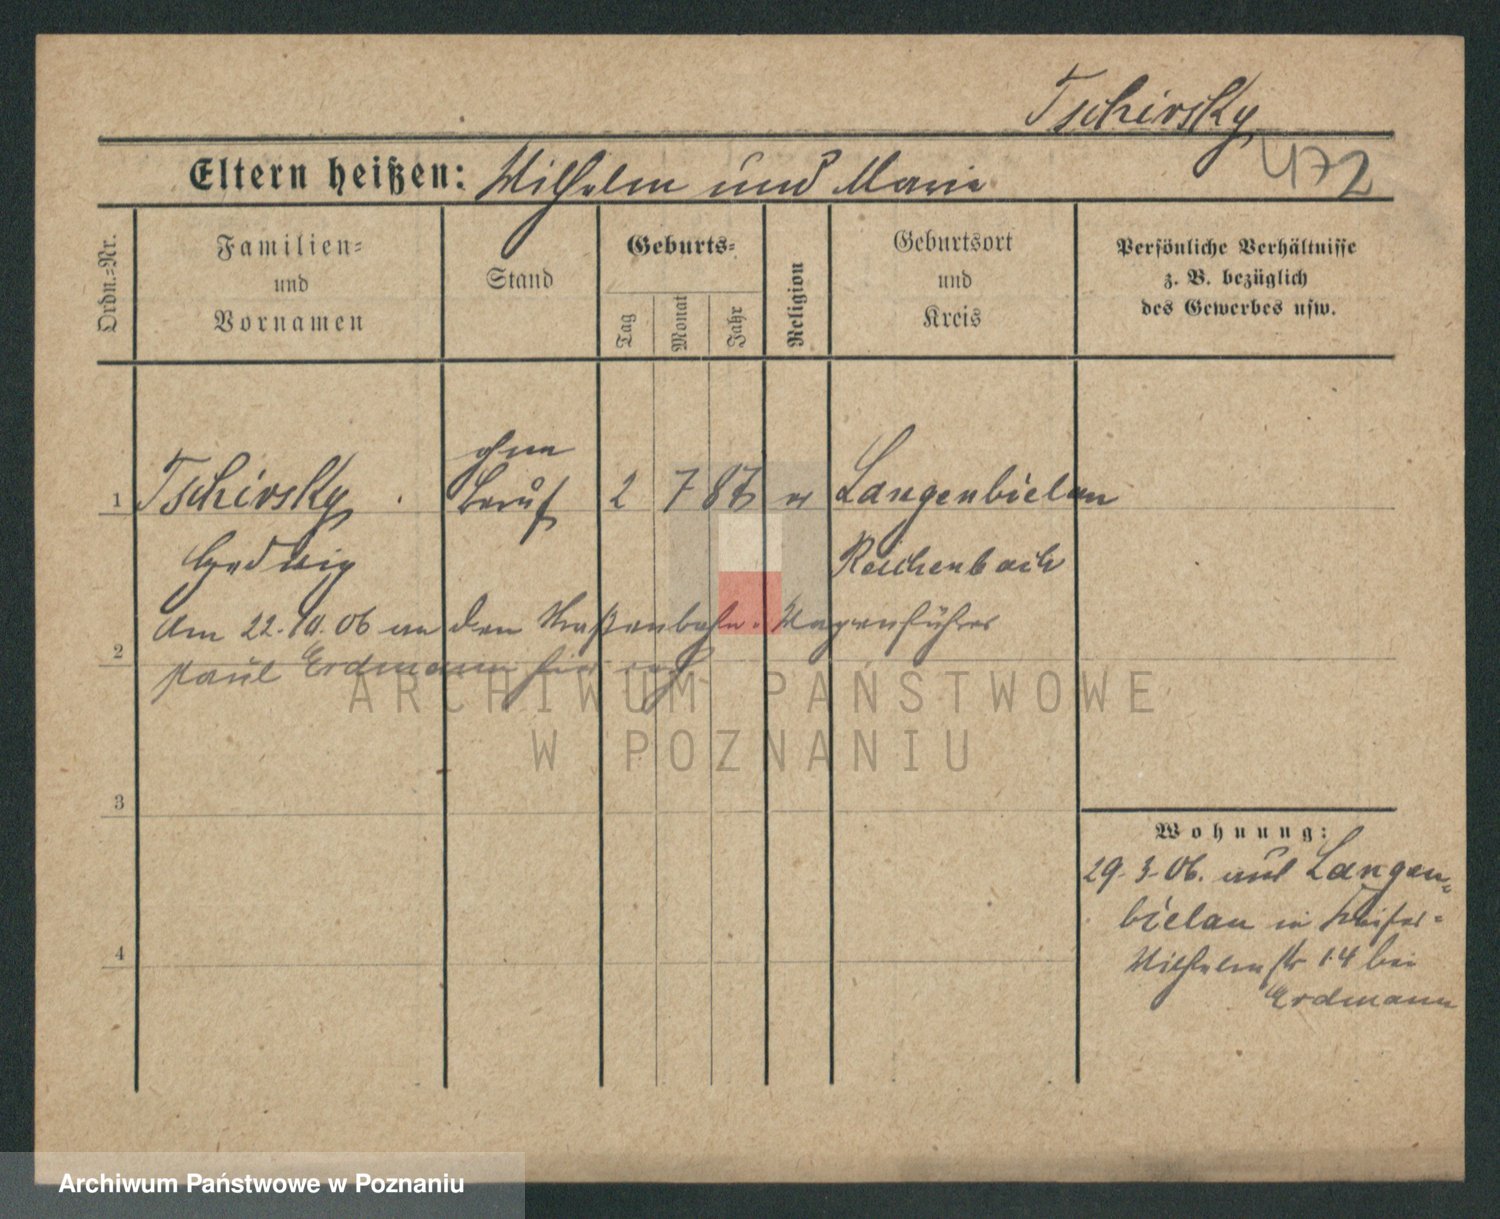 Tschirsky
472
Eltern heißen: Wilhelm und Marie
Ordn.=Nr.
Familien=
und
Vornamen
Stand
Geburts=
Tag
Monat
Jahr
Religion
Geburtsort
und
Kreis
Persönliche Verhältnisse
z. B. bezüglich
des Gewerbes usw.
ohne
1 Tschirsky Beruf 2 7 87 Langenbielau
Hedwig Reichenbach
Am 22.10.06 an den Straßenbahn-Wagenführer
2
Paul Erdmann hier
3
4
Wohnung:
29.3.06. aus Langen=
bielau in Kaiser=
Wilhelmstr 14 bei
Erdmann
ARCHIWUM PAŃSTWOWE
W POZNANIU
Archiwum Państwowe w Poznaniu